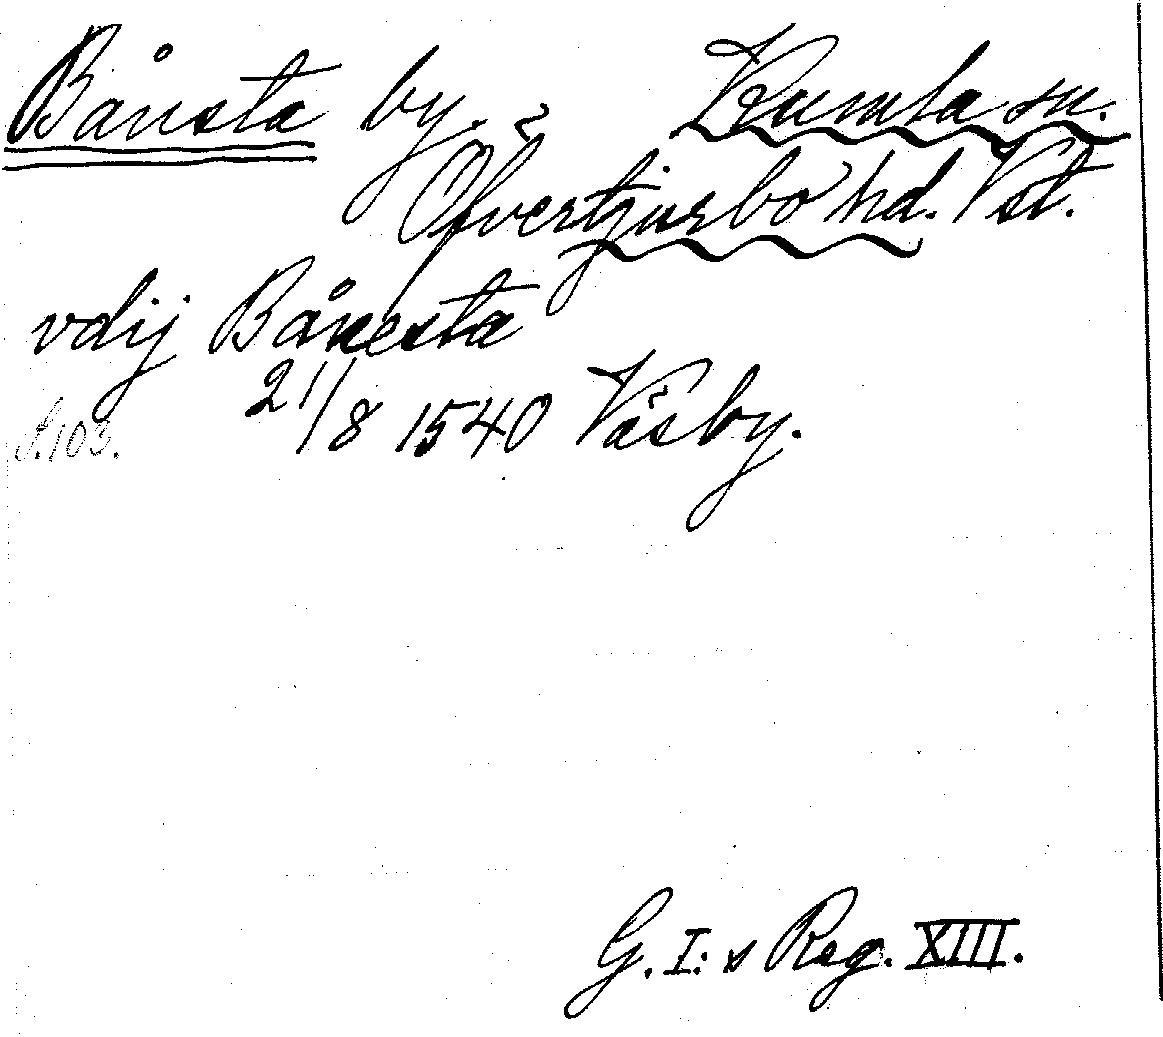 Bånsta by. Kumla sn.
Öfvertjurbo hd. Vstl.
vdij Bånesta
21/8 1540 Väsby.
S. 103.
G. I:s Reg. XIII.